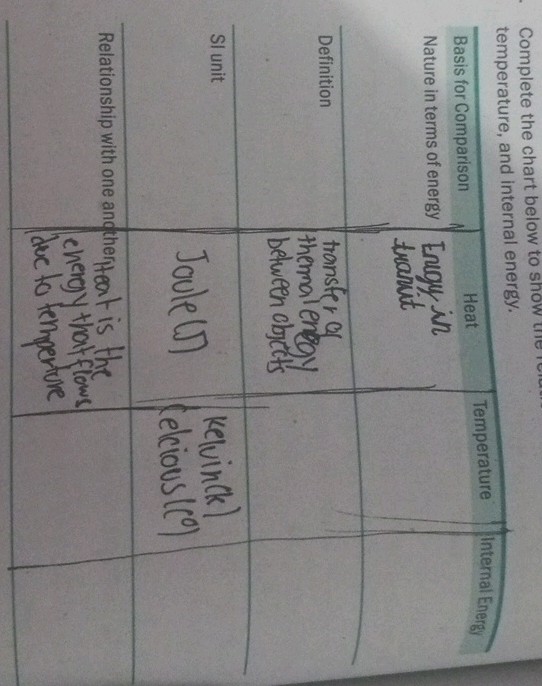 Complete the chart below to show the
temperature, and internal energy.
Basis for Comparison Heat Temperature Internal Energy
Nature in terms of energy Enrgy in
transit
Definition transfer of
thermal energy
between objects
SI unit Joule (J) Kelvin (k)
Celcious (C°)
Relationship with one another Heat is the
energy that flows
due to temperture